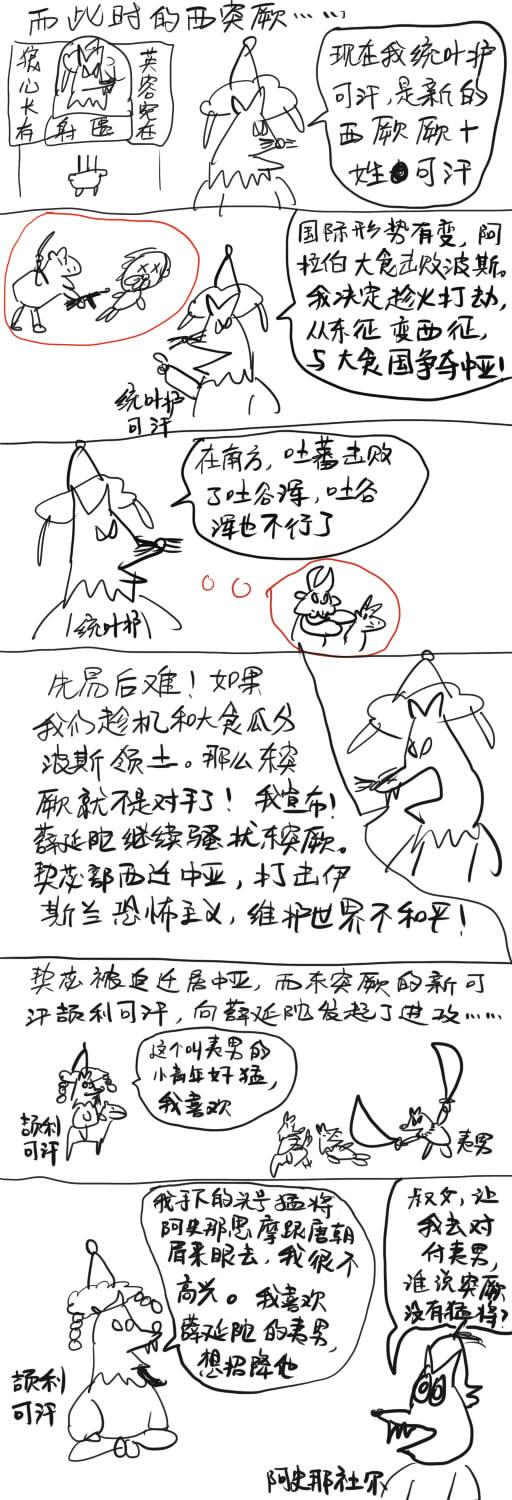 而此时的西突厥……
狼心长存
英容宛在
射匮
现在我统叶护
可汗,是新的
西厥厥十
姓可汗
国际形势有变,阿
拉伯大食击败波斯。
我决定趁火打劫,
从东征变西征,
与大食国争夺中亚!
统叶护
可汗
在南方,吐蕃击败
了吐谷浑,吐谷
浑也不行了
统叶护
先易后难!如果
我们趁机和大食瓜分
波斯领土。那么东突
厥就不是对手了!我宣布!
薛延陀继续骚扰东突厥。
契苾部西迁中亚,打击伊
斯兰恐怖主义,维护世界不和平!
契苾被迫迁居中亚,而东突厥的新可
汗颉利可汗,向薛延陀发起了进攻……
这个叫夷男的
小青年好猛,
我喜欢
颉利
可汗
夷男
我手下的头号猛将
阿史那思摩跟唐朝
眉来眼去,我很不
高兴。我喜欢
薛延陀的夷男,
想招降他
颉利
可汗
叔父,让
我去对
付夷男,
谁说突厥
没有猛将?
阿史那社尔